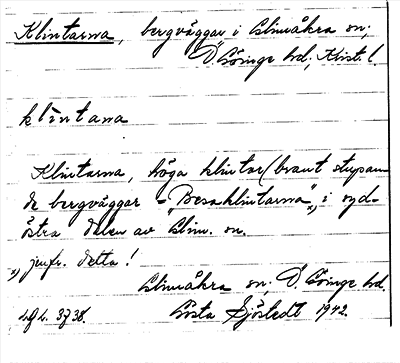 Klintarna, bergväggar i Glimåkra sn,
Ö. Göinge hd, Krist. l.
klìntana
Klintarna, höga klintar (brant stupan-
de bergväggar - "Besaklintarna",¹⁾ i syd-
östra delen av Glim. sn.
¹⁾ jmfr. detta!
Glimåkra sn, Ö. Göinge hd.
Gösta Sjöstedt 1942.